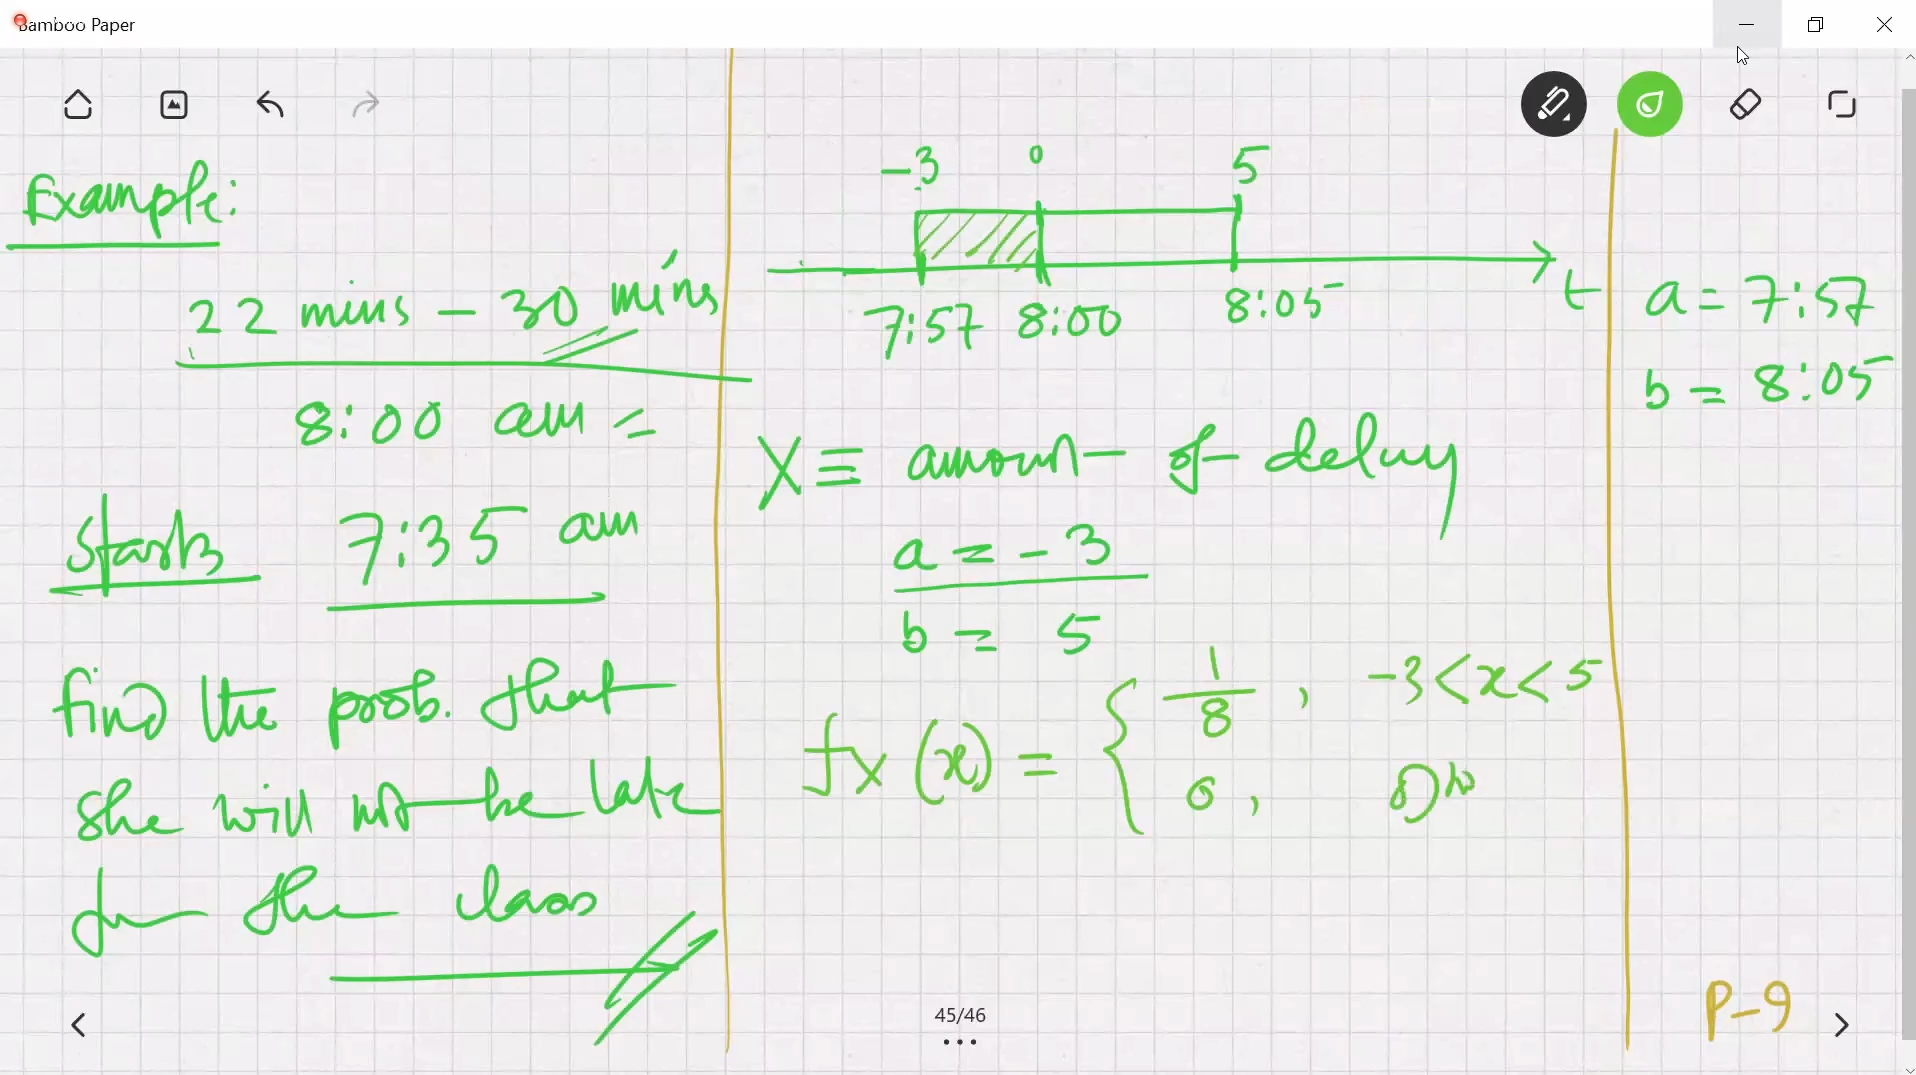 Bamboo Paper
Example:
22 mins - 30 mins
8:00 am =
Starts 7:35 am
find the prob. that
she will not be late
for the class
-3 0 5
7:57 8:00 8:05 t
X ≡ amount of delay
a = -3
b = 5
fx (x) = { 1/8 , -3 < x < 5
0 , O)w
a = 7:57
b = 8:05
45/46
P-9